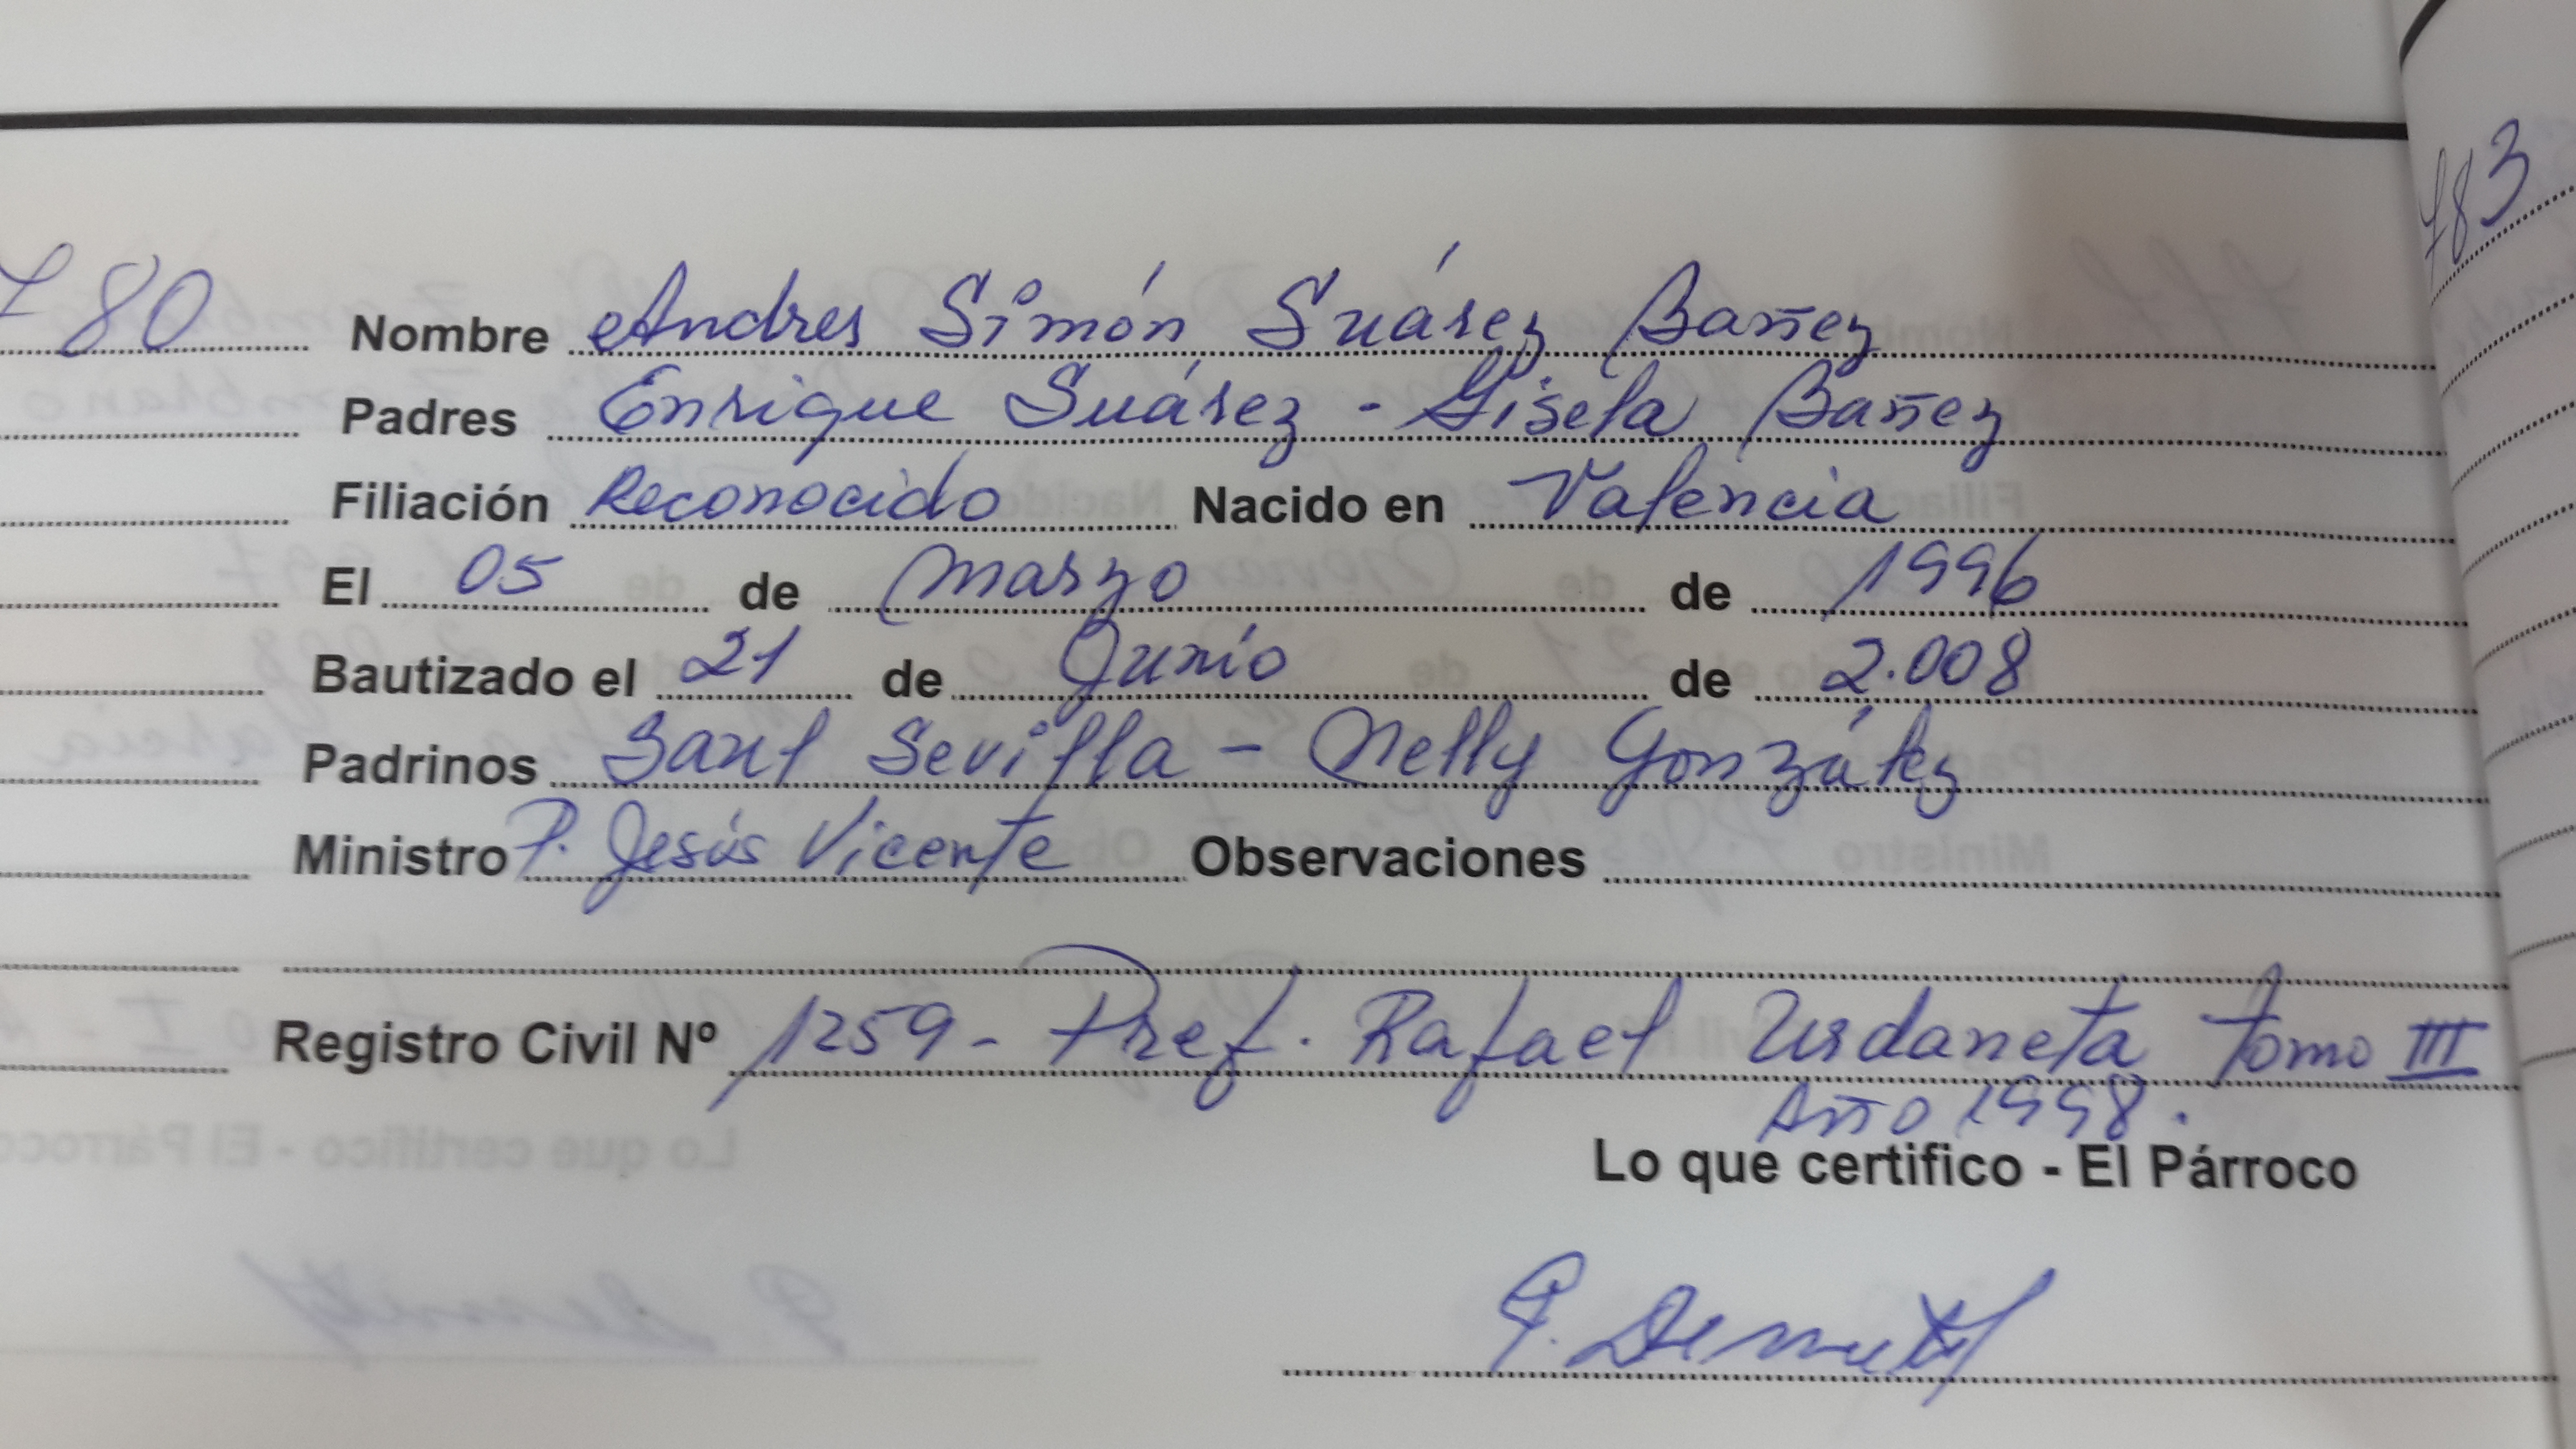 780 Nombre Andres Simón Suárez Bañez
Padres Enrique Suárez - Gisela Bañez
Filiación Reconocido Nacido en Valencia
El 05 de Marzo de 1996
Bautizado el 21 de Junio de 2.008
Padrinos Saul Sevilla - Nelly González
Ministro P. Jesús Vicente Observaciones
Registro Civil Nº 1259 - Pref. Rafael Urdaneta Tomo III
Año 1998.
Lo que certifico - El Párroco
783